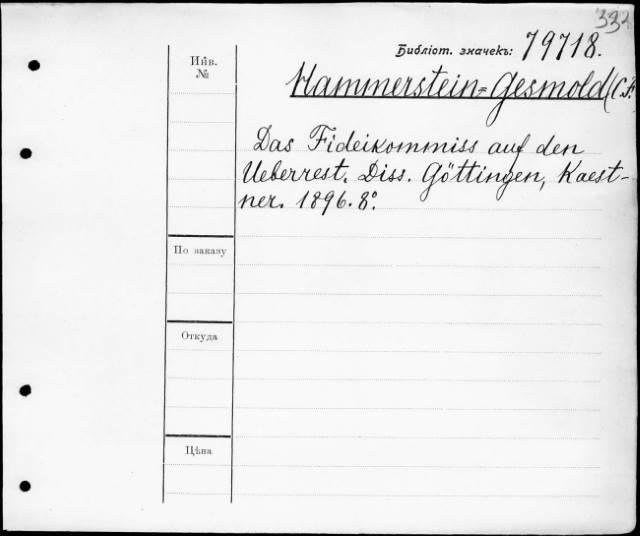 332
Библіот. значекъ: 79718.
Инв.
№
Hammerstein=Gesmold (C. F.
Das Fideikommiss auf den
Ueberrest. Diss. Göttingen, Kaest-
ner. 1896. 8°.
По заказу
Откуда
Цѣна